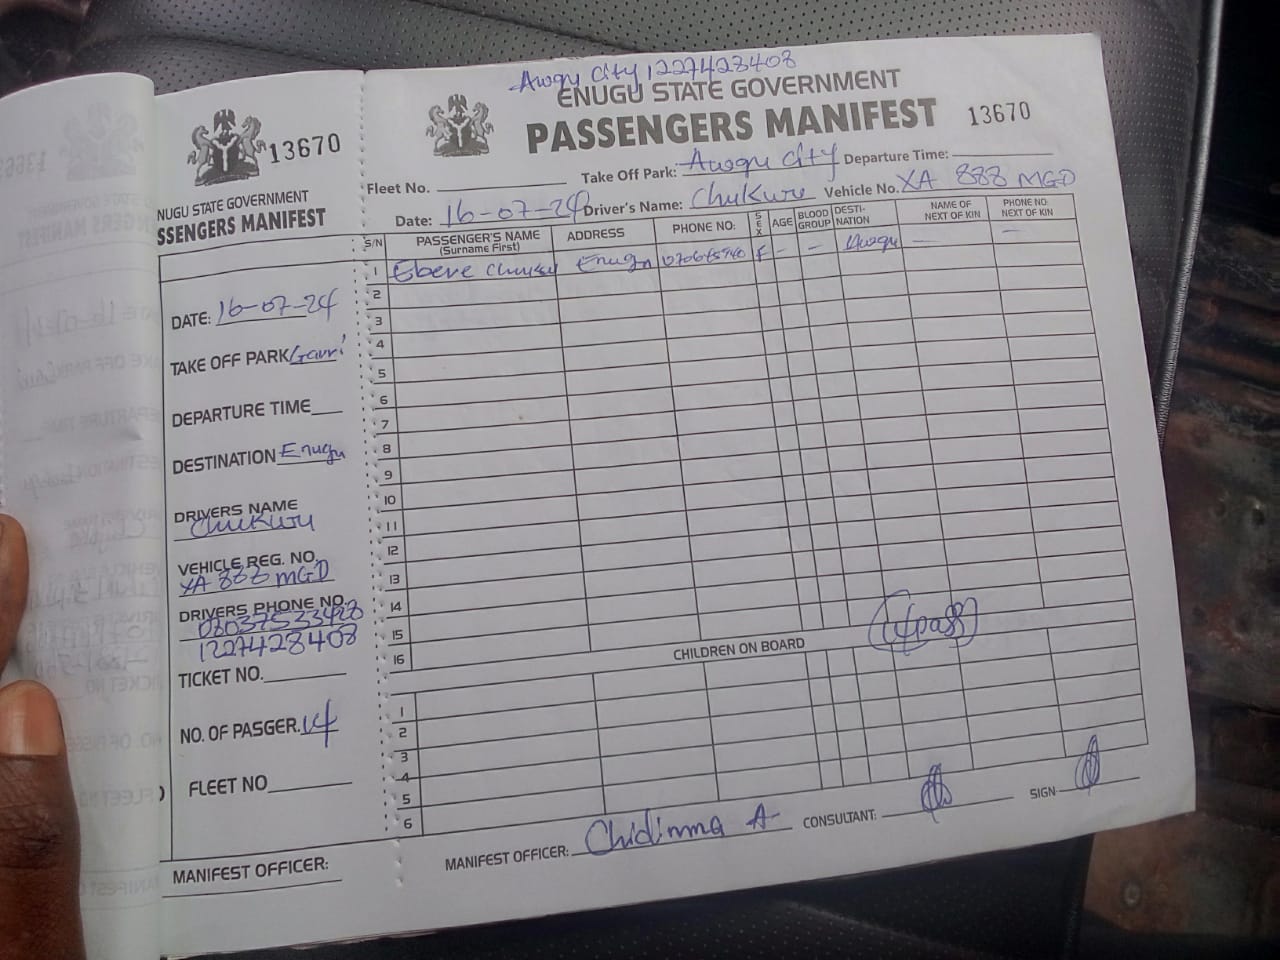 13670
NUGU STATE GOVERNMENT
SSENGERS MANIFEST
DATE: 16-07-24
TAKE OFF PARK Garri
DEPARTURE TIME
DESTINATION Enugu
DRIVERS NAME
Chukwu
VEHICLE REG. NO.
XA 888 MGD
DRIVERS PHONE NO.
08037533428
1227428408
TICKET NO.
NO. OF PASGER. 14
FLEET NO
MANIFEST OFFICER:
Awgu City 1227428408
ENUGU STATE GOVERNMENT
PASSENGERS MANIFEST 13670
Fleet No. Take Off Park: Awgu City Departure Time:
Date: 16-07-24 Driver's Name: Chukwu Vehicle No. XA 888 MGD
S/N PASSENGER'S NAME (Surname First) ADDRESS PHONE NO: SEX AGE BLOOD GROUP DESTI-NATION NAME OF NEXT OF KIN PHONE NO. NEXT OF KIN
1 Ebere Enugu F - - Awgu - -
2
3
4
5
6
7
8
9
10
11
12
13
14
15
16
(14pass)
CHILDREN ON BOARD
1
2
3
4
5
6
MANIFEST OFFICER: Chidinma A CONSULTANT: SIGN